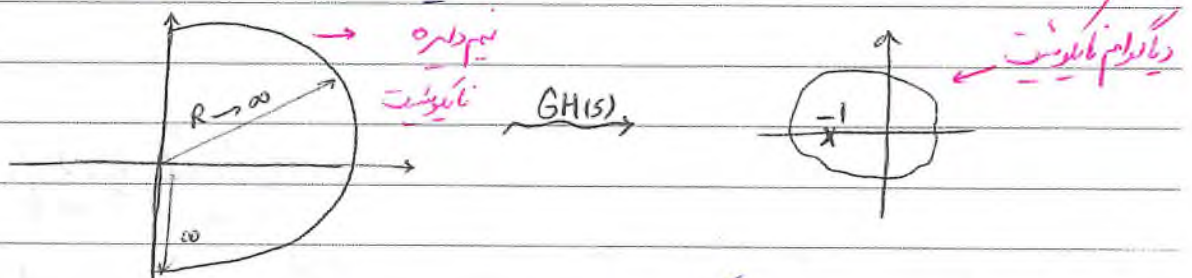 نیم دایره
نایکوئیست
R → ∞
∞
GH(s)
-1
دیاگرام نایکوئیست